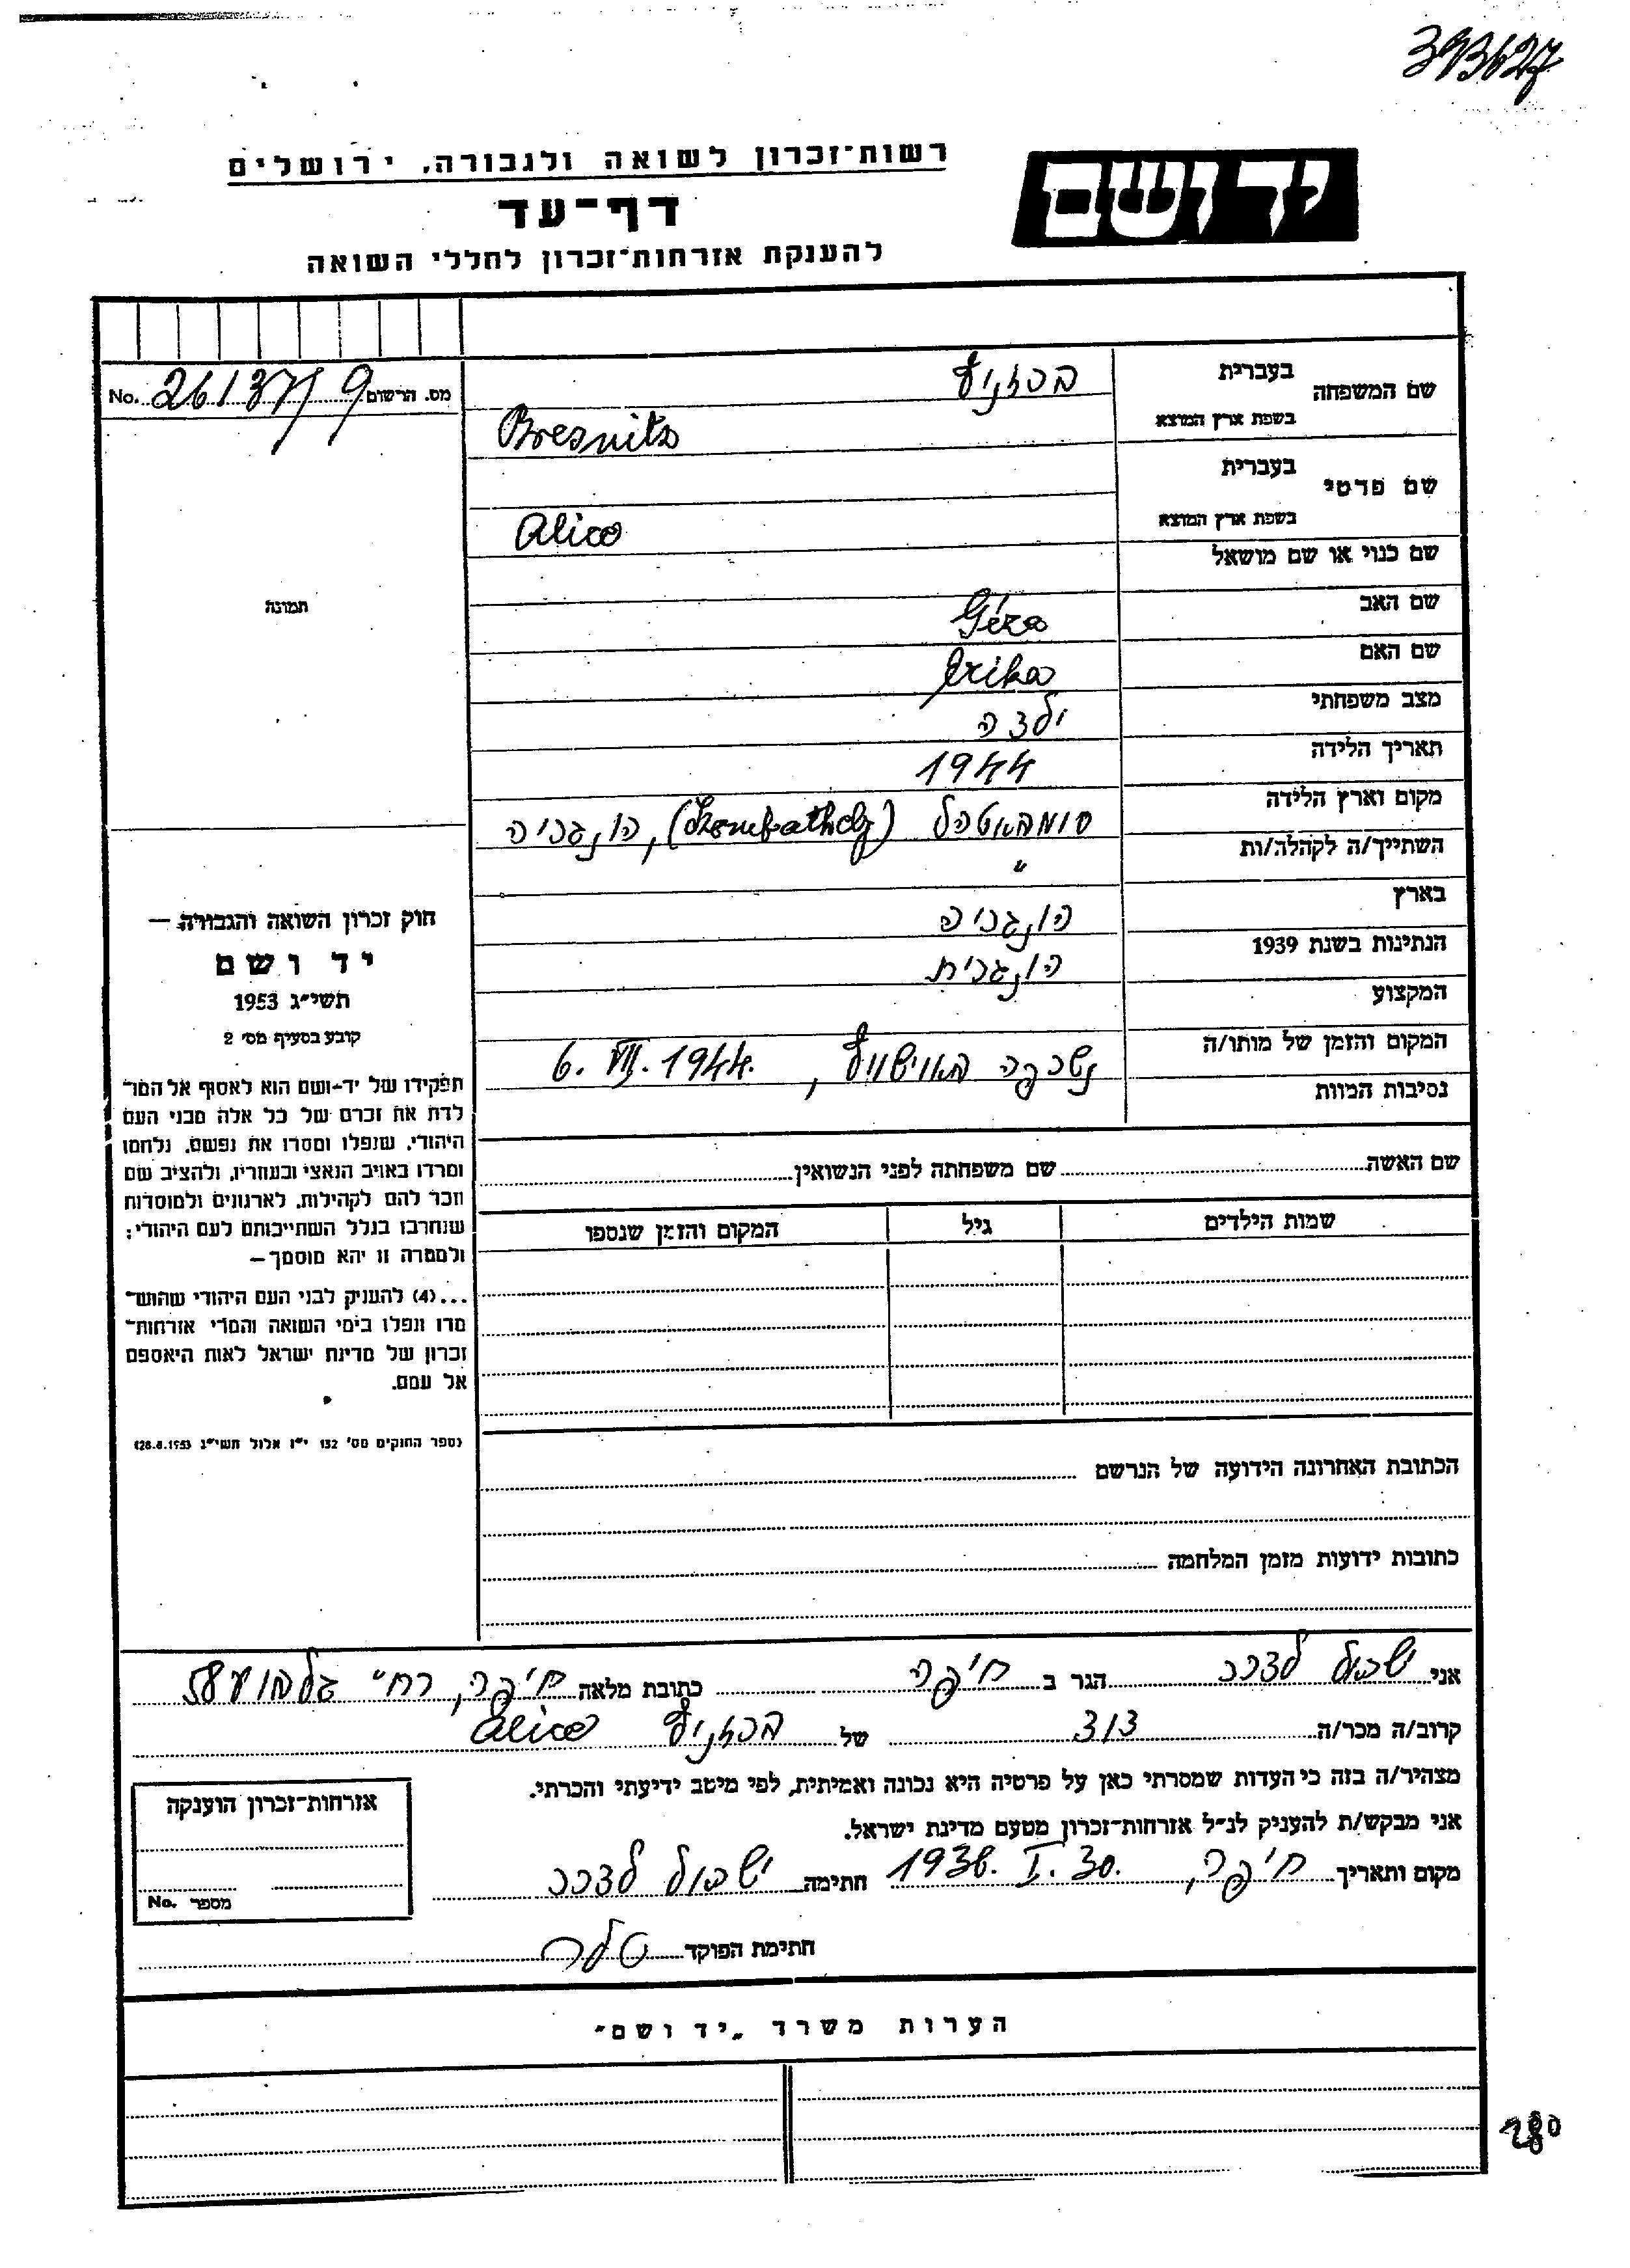 393627
רשות-זכרון לשואה ולגבורה, ירושלים
יד ושם
דף-עד
להענקת אזרחות-זכרון לחללי השואה
שם המשפחה
בעברית ברזניץ
בשפת ארץ המוצא Bresnitz
שם פרטי
בעברית
בשפת ארץ המוצא Alice
שם כנוי או שם מושאל
שם האב Géza
שם האם Erika
מצב משפחתי ילדה
תאריך הלידה 1944
מקום וארץ הלידה סומבאטהל (Szombathely), הונגריה
השתייך/ה לקהלה/ות "
בארץ הונגריה
הנתינות בשנת 1939 הונגרית
המקצוע
המקום והזמן של מותו/ה נשרפה באוישוויץ, 6. VII. 1944.
נסיבות המוות
שם האשה שם משפחתה לפני הנשואין
שמות הילדים גיל המקום והזמן שנספו
הכתובת האחרונה הידועה של הנרשם
כתובות ידועות מזמן המלחמה
מס. הרשום 261371/9 No.
תמונה
חוק זכרון השואה והגבורה –
יד ושם
תשי"ג 1953
קובע בסעיף מס' 2
תפקידו של יד-ושם הוא לאסוף אל המו־
לדת את זכרם של כל אלה מבני העם
היהודי, שנפלו ומסרו את נפשם, נלחמו
ומרדו באויב הנאצי ובעוזריו, ולהציב שם
וזכר להם לקהילות, לארגונים ולמוסדות
שנחרבו בגלל השתייכותם לעם היהודי;
ולמטרה זו יהא מוסמך–
...(4) להעניק לבני העם היהודי שהוש־
מדו ונפלו בימי השואה והמרי אזרחות־
זכרון של מדינת ישראל לאות היאספם
אל עמם.
(ספר החוקים מס' 132 י"ז אלול תשי"ג 28.8.1953)
אני הגר ב חיפה כתובת מלאה חיפה, רח' 58
קרוב/ה מכר/ה דוד של ברזניץ Alice
מצהיר/ה בזה כי העדות שמסרתי כאן על פרטיה היא נכונה ואמיתית, לפי מיטב ידיעתי והכרתי.
אני מבקש/ת להעניק לנ"ל אזרחות-זכרון מטעם מדינת ישראל.
מקום ותאריך חיפה, 30. I. חתימה
חתימת הפוקד
אזרחות-זכרון הוענקה
מספר No.
הערות משרד "יד ושם"
280